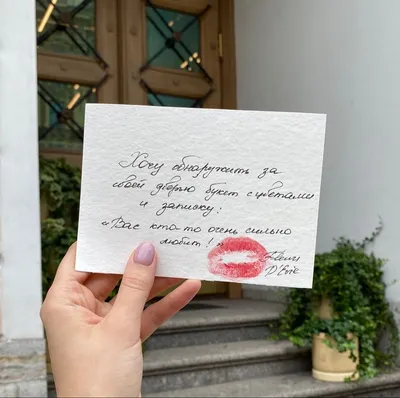 Хочу обнаружить за
своей дверью букет с цветами
и записку:
«Вас кто-то очень сильно
любит!»
D'Este